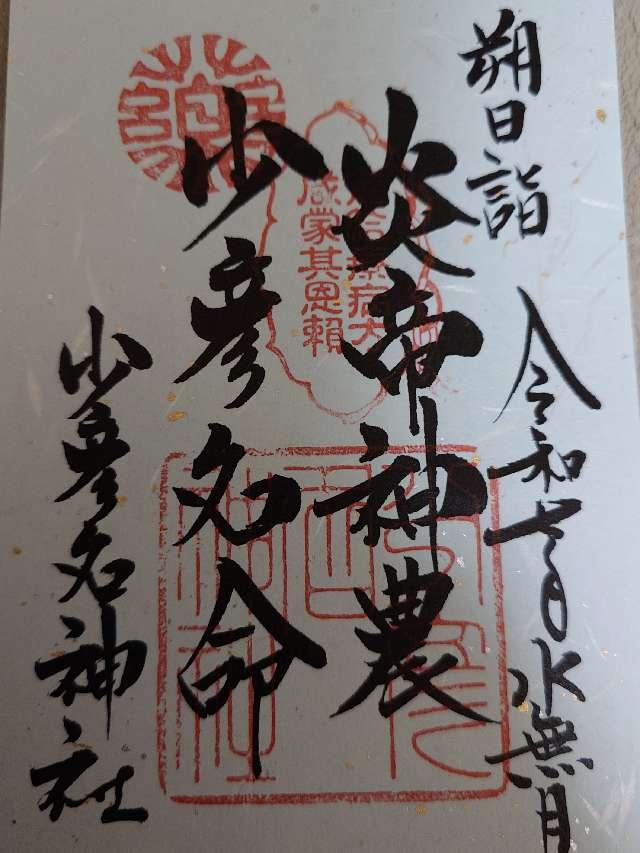 朔日詣
令和七年水無月
炎帝神農
少彦名命
少彦名神社
咸蒙其恩頼